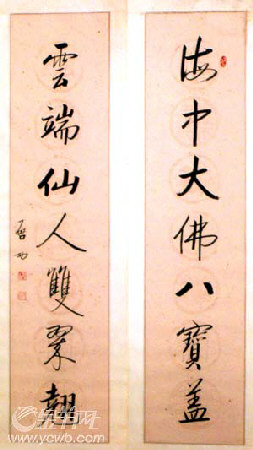 海中大佛八寶蓋
雲端仙人雙翠翹
啓功
金羊网
www.ycwb.com